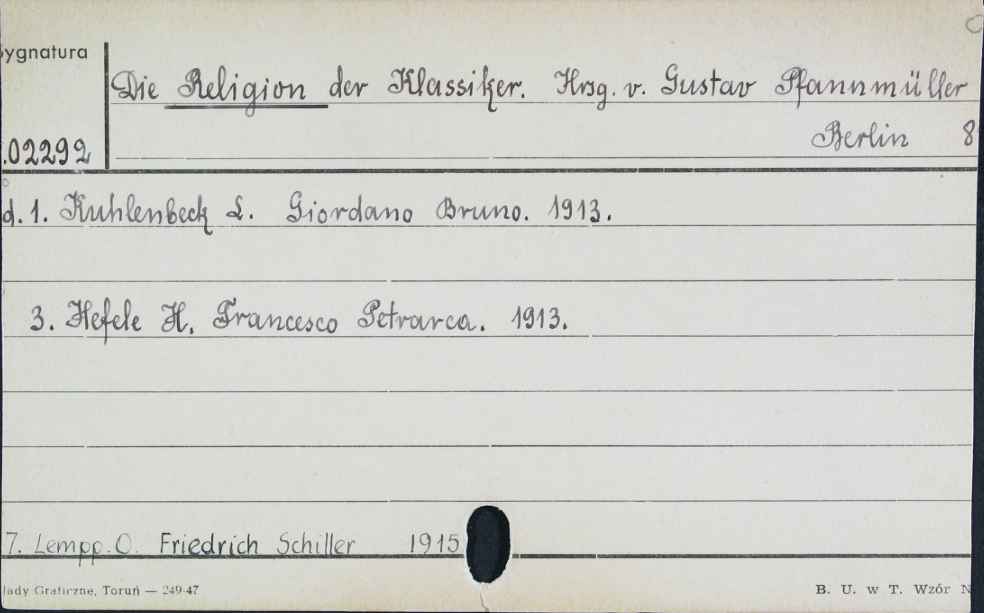 ygnatura
Die Religion der Klassiker. Hrsg. v. Gustav Pfannmüller
Berlin 8
.02292
d. 1. Kuhlenbeck L. Giordano Bruno. 1913.
3. Hefele H. Francesco Petrarca. 1913.
7. Lempp. O. Friedrich Schiller 1915
łady Graficzne, Toruń — 249-47
B. U. w T. Wzór N